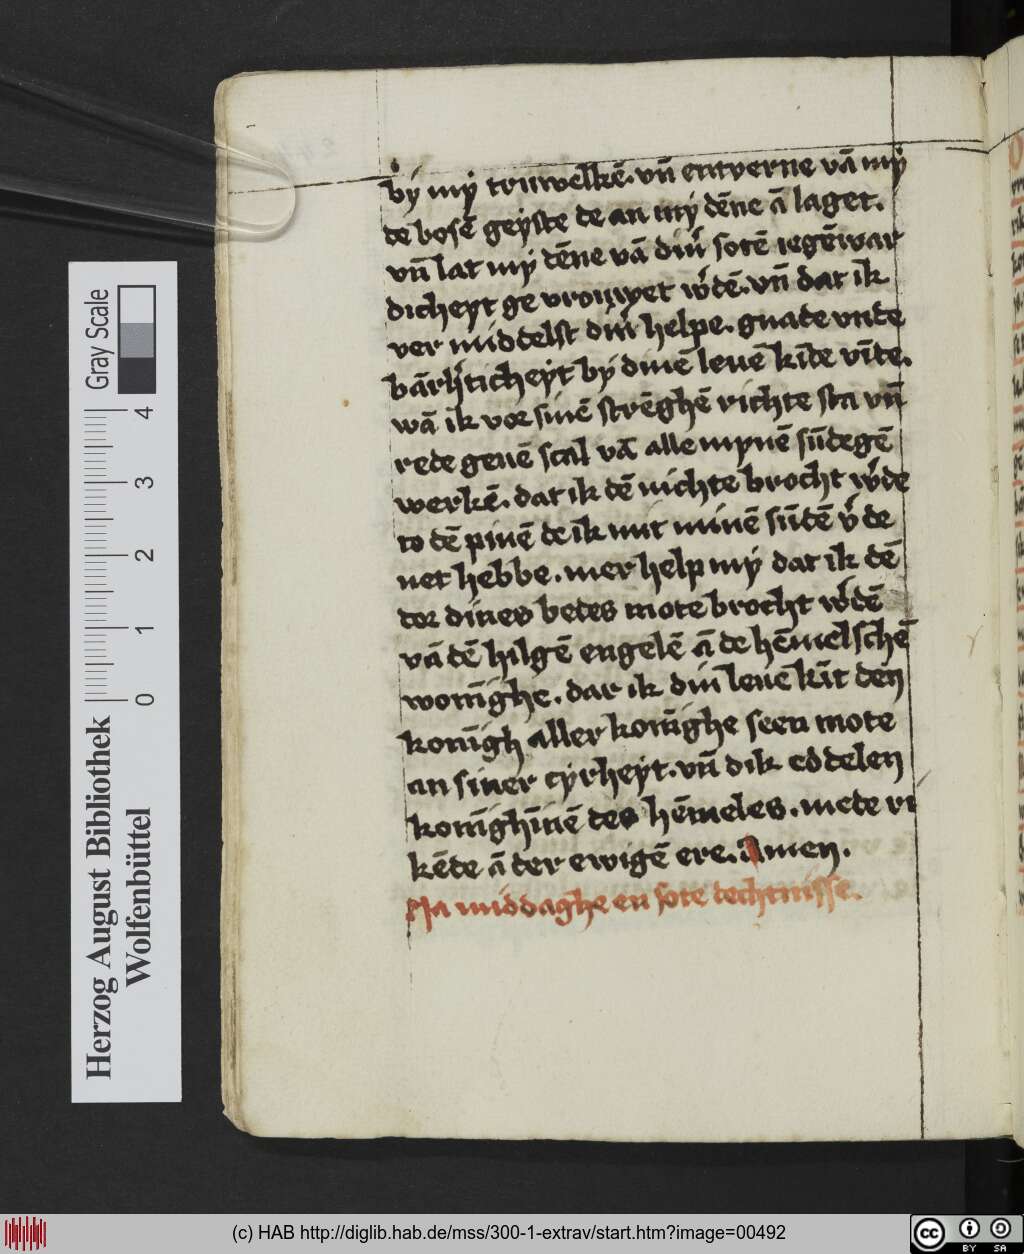 by my truwelkē. vn̄ entverne vā my
de bosē geyste de an my dēne ā laget.
vn̄ lat my dēne vā din̾ sotē iegēwar
dicheyt ge vrouwet w̾dē. vn̄ dat ik
ver middelst din̾ helpe. gnade vnde
bārh̾ticheyt by dinē leuē kīde vīde.
wā ik vor sinē strēghē richte sta vn̄
rede geuē scal vā alle mynē sūdegē
werkē. dat ik dē nichte brocht w̾de
to dē pinē de ik mit minē sūdē v̾ de
net hebbe. mer help my dat ik dē
dor dines bedes mote brocht w̾dē
vā dē hilgē engelē ā de hēmelschē
wonīghe. dar ik din leuē kīt den
konīgh aller konīghe seen mote
an siner cyrheyt. vn̄ dik eddelen
konīghīnē des hēmeles. mede ri
kēde ā der ewigē ere. Amen.
Na middaghe en sote dechtnisse.
Herzog August Bibliothek
Wolfenbüttel
Gray Scale
0 1 2 3 4
(c) HAB http://diglib.hab.de/mss/300-1-extrav/start.htm?image=00492
cc BY SA